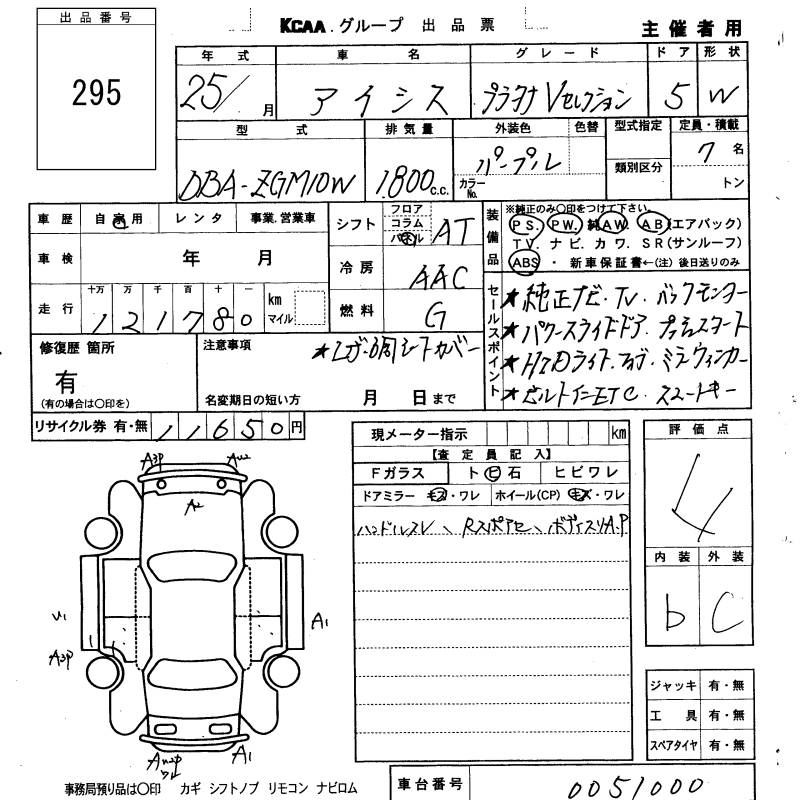 出品番号
295
KCAA.グループ 出品票
主催者用
年式 車名 グレード ドア 形状
25/ 月 アイシス プラタナ Vセレクション 5 W
型式 排気量 外装色 色替 型式指定 定員・積載
DBA-ZGM10W 1800 c.c. パープル カラーNo. 類別区分 7名 トン
車歴 自家用 レンタ 事業.営業車
車検 年 月
走行 十万 万 千 百 十 一 km マイル
121780
シフト フロア コラム パネル AT
冷房 AAC
燃料 G
装備品 ※純正のみ〇印をつけて下さい。
PS. PW. 純AW. AB(エアバック)
TV. ナビ. カワ. SR(サンルーフ)
ABS ・ 新車保証書←(注)後日送りのみ
セールスポイント
★純正ナビ・TV・バックモニター
★パワースライドドア プッシュスタート
★HIDライト・フォグ・ミラーウィンカー
★ビルトインETC・スマートキー
修復歴 箇所
有
(有の場合は〇印を)
注意事項
★レザー調シートカバー
名変期日の短い方 月 日まで
リサイクル券 有・無 11650円
現メーター指示 km
【査定員記入】
Fガラス トビ石 ヒビワレ
ドアミラー キズ・ワレ ホイール(CP) キズ・ワレ
ハンドルスレ、Rスポアセ、ボディスリA.P
評価点
4
内装 外装
b C
ジャッキ 有・無
工具 有・無
スペアタイヤ 有・無
A3P
AU2
A2
U1
A1
A3P
A1
事務局預り品は〇印 カギ シフトノブ リモコン ナビロム
車台番号 0051000